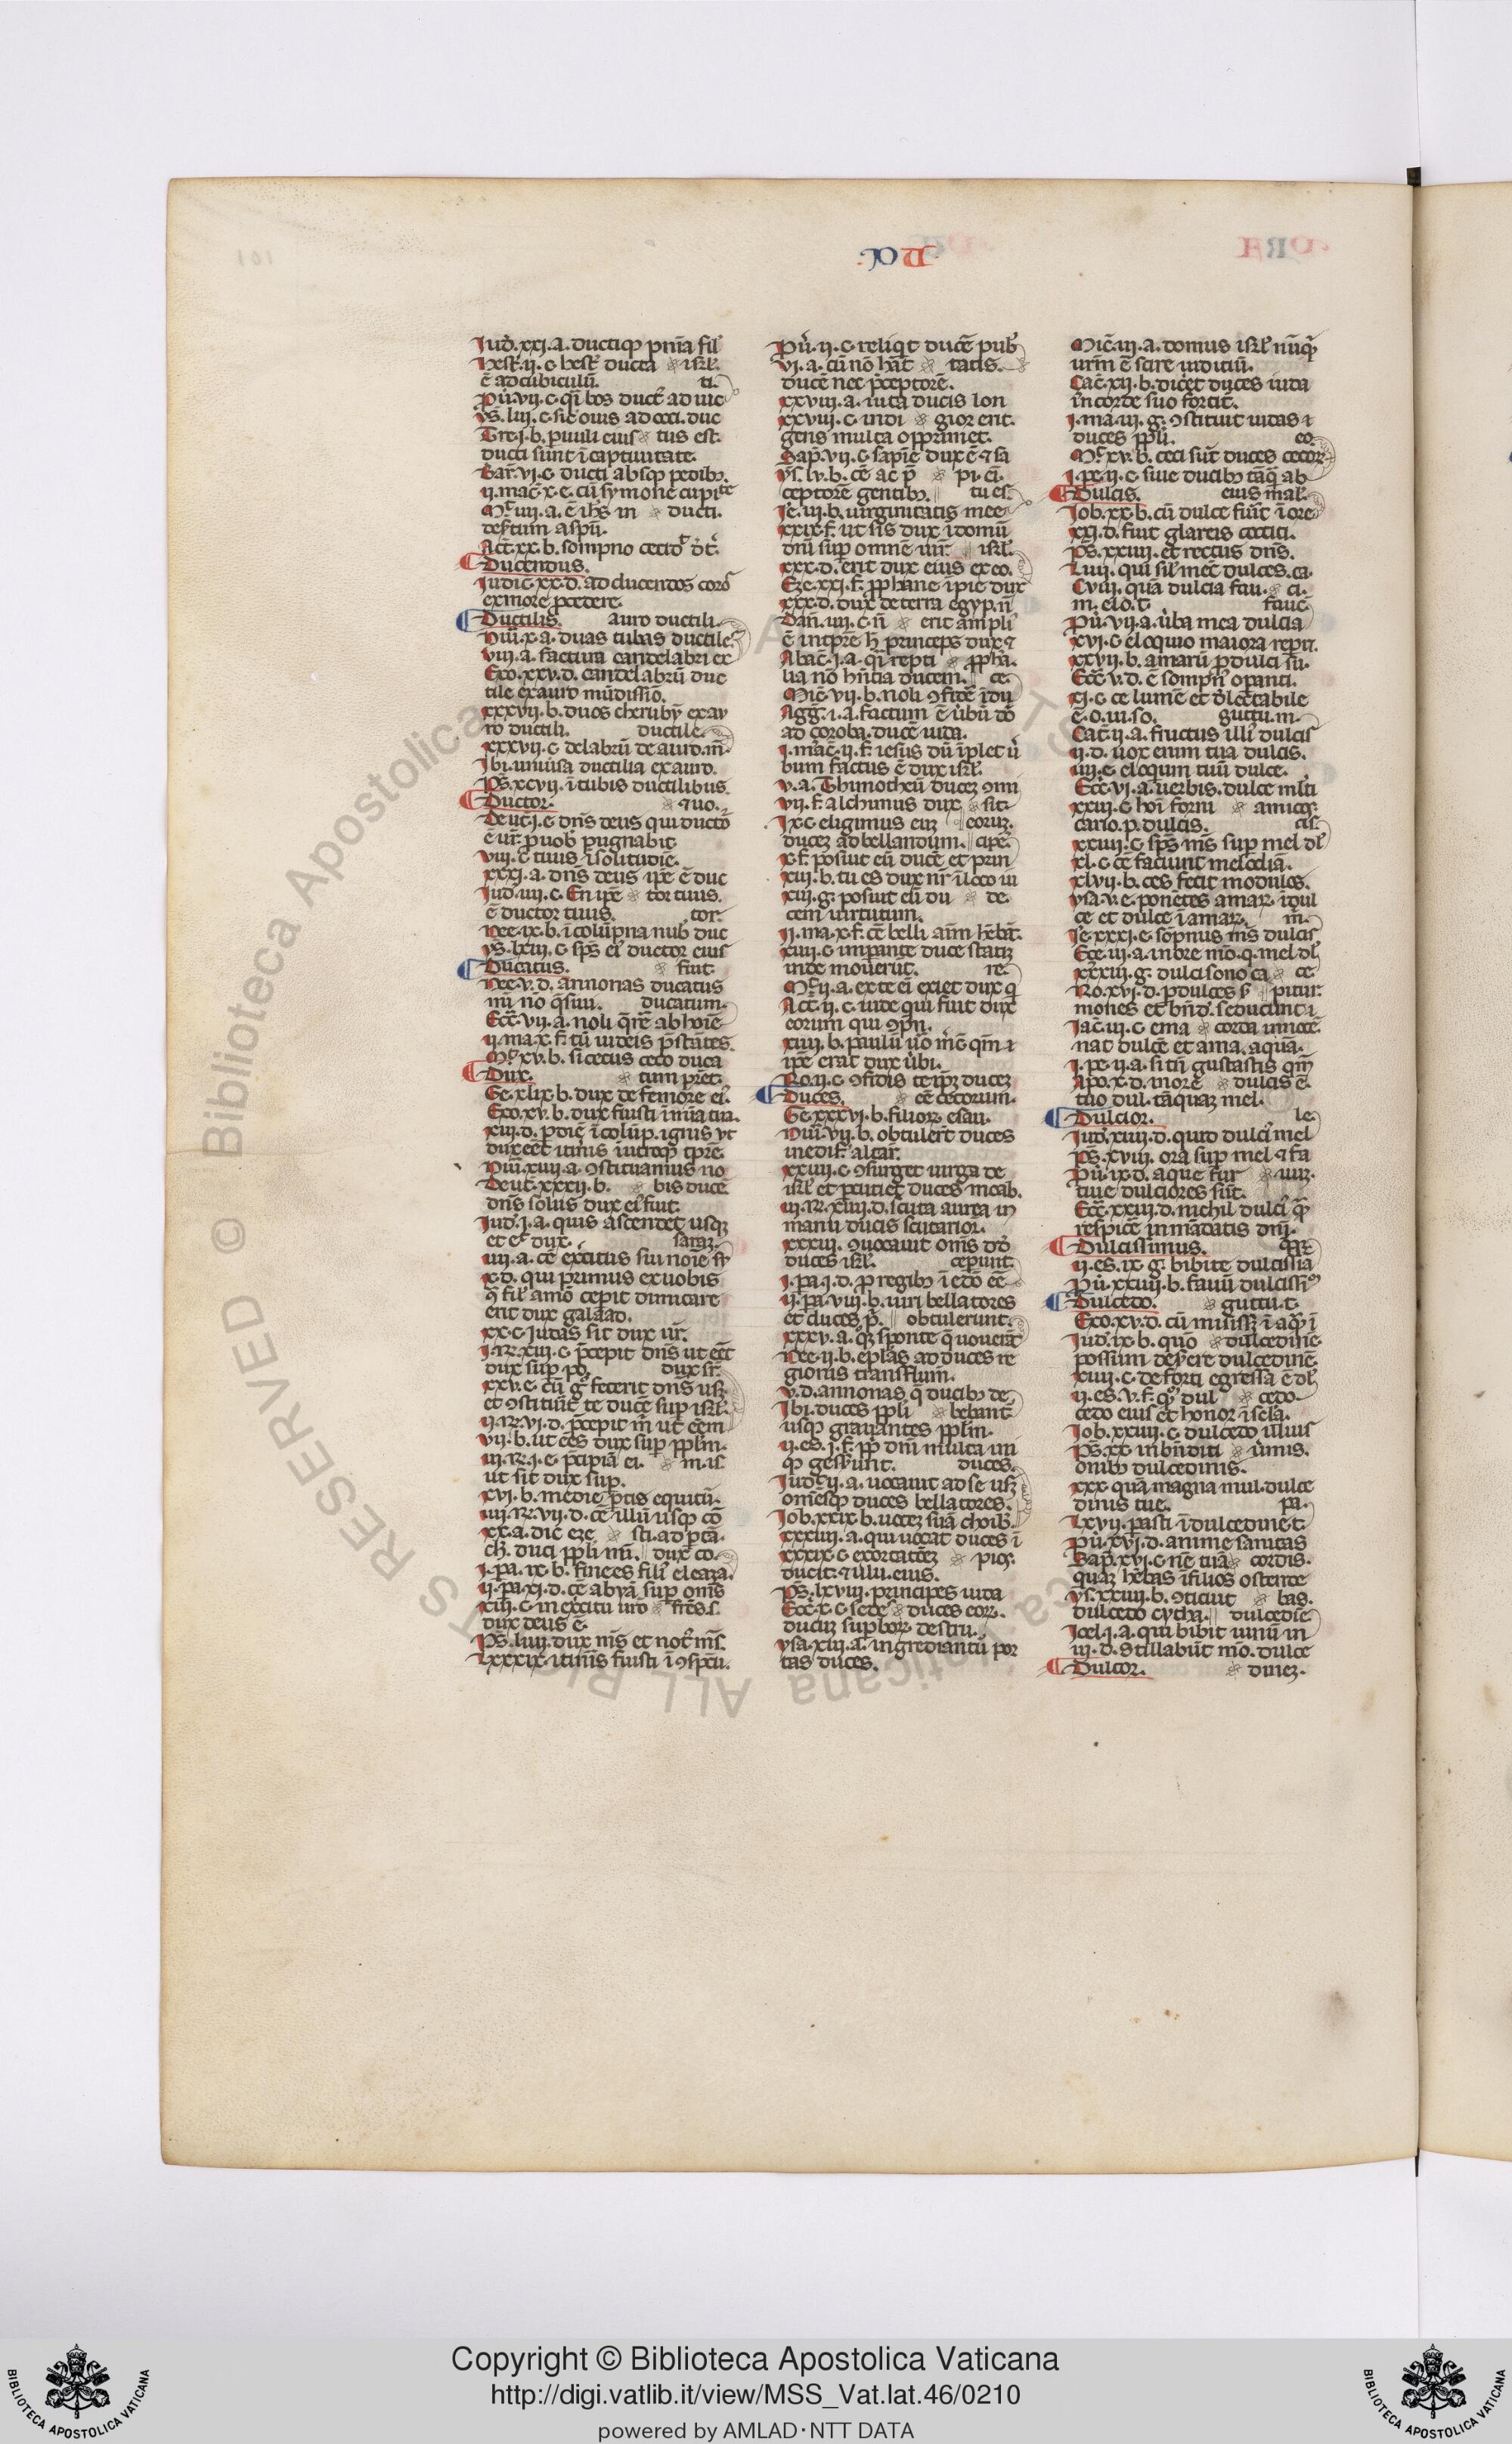 DU
Iud̄.xxi.a. ductiq; pn̄ia fil'
hest'.ii.c hest' ducta isrl'.
ē ad cubiculū. ti.
Pu'.vii.c. q̄i bos duct' ad uic
ys.liii.c. sic ouis ad occi. duc
Tre.i.b. puuli eius tus est.
ducti sunt ī captiuitate.
Bar̄.vi.c ducti absq; pedib;.
ii.mac̄.x.e. cū symone cupi te
Mt̄.iiii.a. ē ih̄s in ducti.
desertum a spū.
Act̄.xx.b. sompno
Ducendus.
Iudic̄.xx.d. ad ducentos
ex more
Ductilis. auro ductili.
Nūi.x.a. duas tubas ductile
viii.a. factura candelabri ex
Exo.xxv.d. candelabrū duc
tile ex auro mūdissīo.
xxxvii.b. duos cherubȳ ex au
ro ductili. ductile.
xxxvii.c delabrū de auro.
Ibi. uniu'sa ductilia ex auro.
Ps̄.xcvii. ī tubis ductilibus.
Ductor.
Deut̄.i.c dn̄s deus qui ducto
ē ur̄. p uob' pugnabit
viii.c tuus ī solitudīe.
xxxi.a. dn̄s deus ip̄e ē duc
Iud.iiii.c. En ip̄e tor tuus.
ē ductor tuus. tor.
Nee.ix.b. ī colūpna nub' duc
ys.lxiii.c sp̄s ei' ductor eius
Ducatus. fuit.
Nee.v.d. annonas ducatus
mī nō q̄siui. ducatum.
Ecc̄.vii.a. noli q̄re ab hoīe
ii.ma.x.f. tū uideis p̄stātes.
Mt̄.xv.b. si cecus ceco duca
Dux. tum pret.
Ge.xlix.b. dux de femore ei'.
Exo.xv.b. dux fuisti ī mīa tua.
xiii.d. p̄dic̄ ī colūp. ignis ut
dux eēt itinīs utroq; tp̄re.
Nūi.xiiii.a. ɔstituamus no
Deut̄.xxxii.b. bis ducē
dn̄s solus dux ei' fuit.
Iud'.i.a. quis ascendet
et er̄ dux.
iiii.a. cē exc̄itus sui noīe sy
x.d. qui primus ex uobis
ɔ̄ fil' amō cepit dimicare
erit dux galaad.
xx.c iudas sit dux ur̄.
i.R.xiii.c p̄cepit dn̄s ut eēt
dux sup pō. dux sr̄.
xxv.e. cū g̊ fecerit dn̄s
et ɔstituūt te ducē sup isrl'.
ii.R.vi.d. p̄cepit m̄ ut eēm
vii.b. ut ees dux sup pplm̄.
iii.R.i.e p̄cipiā ei. m.is.
ut sit dux sup.
xvi.b. medie ptis equitū.
iiii.R.vii.d. cē illū usq; cō
xx.a. dic eze
ch̄. duci ppli mī. dux co.
i.pa.ix.b. finees fili' eleaza.
ii.pa.xi.d. cē abyā sup om̄s
xiii.c in exc̄itu nr̄o fr̄es.s.
dux deus ē.
Ps̄.liiii. dux m̄s et not' m̄s.
lxxxix. itinīs fuisti ī ɔspc̄tu.
Pu'.ii.c. reliq̄t ducē pub
vi.a. cū nō hāt tatis.
ducē nec p̄ceptorē.
xxviii.a. uita ducis lon
xxviii.c. indi gior erit.
gens multa opprimet.
Sap̄.vii.c sapīe dux ē & sa
ys.lv.b. cē ac p̄ pi. ei.
ceptorē gentib;. tu es.
Ie.iii.b. uirginitatis mee
xxix.f. ut sis dux ī domū
dn̄i sup omnē uir̄. isrl'.
xxx.d. erit dux eius ex eo.
Eze.xxi.f. pphane īpie dux
xxx.d. dux de terra egyp. n̄
Dan̄.iiii.c. n̄ erit ampli'
ē intp̄re h̄ princeps dux &
Abac̄.i.a. q̄i repti ppha.
lia nō hn̄tia ducem. ce.
Mic̄.vii.b. noli ɔfidē ī du
Agḡ.i.a. factum ē u'bū dō
ad zoroba. ducē iuda.
i.mac̄.ii.f. iesus dū īplet u'
bum factus ē dux isrl'.
v.a. Thimotheū ducez ɔmi
vii.f. alchimus dux
ix.c eligimus eū
ducez ad bellandum.
x.f. posuit eū ducē et prin
xiii.b. tu es dux nr̄ ī loco iu
xiii.g. posuit eū du de.
cem uirtutum.
ii.ma.x.f. cē belli aīm h̄ebāt.
xiiii.c imp̄ante duce statiz
inde mouerūt. re.
Mt̄.ii.a. ex te eī exiet dux q
Act̄.ii.c. uide qui fuit dux
eorum qui ɔpn̄.
xiiii.b. paulū u'o m'c q̄m &
ip̄e erat dux u'bi.
Ro.ii.c ɔfidis teip̄z ducez
Duces. eē cecorum.
Ge.xxxvi.b. filiorz esau.
Nūi.vii.b. obtulert duces
in edif. altar̄.
xxiiii.c ɔsurget uirga de
isrl' et p̄cutiet duces moab.
iii.R.xiiii.d. scuta aurea in
manu ducis scutarior̄.
xxxiii. ɔuocauit om̄s
duces isrl'. ceperunt.
i.pa.i.d. p regib; ī edō eē
ii.pa.viii.b. uiri bellatores
et duces p̄. obtulerunt.
xxxv.a. q; sponte q uouerāt
Nee.ii.b. ep̄las ad duces re
gionis transflum.
v.d. annonas q̄ ducib; de
Ibi. duces ppli bebant̄
usq; grauantes pplm̄.
ii.es.i.f. pp dn̄m multa im
q; gesserūt. duces.
Iudt̄.ii.a. uocauit ad se
om̄esq; duces bellatores.
Iob.xxix.b. uocez suā
xxxiiii.a. qui uocat duces ī
xxxix.c exortatōez pios.
ducū. & ulu. eius.
Ps̄.lxviii. principes iuda
Ecc̄.x.c sedes duces eorz.
ducuz supborz destru.
ysa.xiii.a. ingrediantū por
tas duces.
Mic̄.iii.a. domus isrl' nūq̄
ur̄m ē scire iudiciū.
Zac̄.xii.b. dicēt duces iuda
in corde suo fortit̄.
i.ma.iii.g. ɔstituit iudas &
duces ppli. eo.
Mt̄.xv.b. ceci sūt duces cecor̄
i.pe.ii.c siue ducib; tāq̄ ab
Dulcis. eius mal'.
Iob.xx.b. cū dulce fuīt ī ore
xxi.d. fuit glareis cociti.
Ps̄.xxiiii. et rectus dn̄s.
Liiii. qui sil' mec̄ dulces. ca.
Cviii. quā dulcia fau. ci.
m. elo. t. fauc̄
Pu'.vii.a. u'ba mea dulcia
xvi.c eloquio maiora rep̄it.
xxvii.b. amarū p dulci su.
Ecc̄.v.d. ē sompn' opanti.
xi.c ce lumē et delectabile
ē. o. ui. so. guttu. m.
Cāt̄.ii.a. fructus illi' dulcis
ii.d. uox enim tua dulcis.
iiii.e. eloqium tuū dulce.
Ecc̄.vi.a. uerbis. dulce ml'ti
xxiii.c hoī forni amicos.
cario. p. dulcis. cis.
xxiiii.c sp̄s m̄s sup mel dl'
xl.c cē faciunt melodiā.
xlvii.b. ces fecit modulos.
ysa.v.e. ponētes amar̄. ī dul
ce et dulce ī amar̄. m̄.
Ie.xxxi.e. sōpnus m̄s dulcis
Eze.iii.a. in ore mō. q. mel dl'
xxxiii.g. dulci sono ca ce.
Ro.xvi.d. p dulces s' pitur.
mones et bn̄d'. seducunt &
Iac̄.iii.c ema corda innocē.
nat dulcē et ama. aquā.
i.pe.ii.a. si tn̄ gustastis qm̄
Apo.x.d. in ore dulcis ē.
tuo dul. tāquaz mel.
Dulcior. le
Iud'.xiiii.d. quid dulci' mel
Ps̄.xviii. ora sup mel & fa
Pu'.ix.d. aque fur uū.
tiue dulciores sūt.
Ecc̄.xxiii.d. nichil dulci' q̄
respicē in mādatis dn̄i.
Dulcissimus.
ii.es.ix.g. bibite dulcissīa
Pu'.xxiiii.b. fauū dulcissi
Dulcedo. guttu. t.
Exo.xv.d. cū misissz ī aq̄s ī
Iud'.ix.b. quō dulcedine
possum deserere dulcedinē
xiiii.c. de forti egressa ē dl'
ii.es.v.f. q̄ dul cedo
cedo eius et honor ī scl̄a.
Iob.xxiiii.c dulcedo illius
Ps̄.xx. in bn̄diti u'mis.
onib; dulcedinis.
xxx. quā magna mul. dulce
dinis tue. pa.
lxvii. pasti ī dulcedine t.
Pu'.xvi.d. anime sanitas
Sap̄.xvi.c nē tuā cordis.
quaz hēbas ī filios ostende
ys.xxiiii.b. ɔticuit bas.
dulcedo cytha. dulcedīe
Ioel.i.a. qui bibit' uinū in
iii.d. stillabūt mō. dulce
Dulcor. dinez.
Copyright © Biblioteca Apostolica Vaticana
http://digi.vatlib.it/view/MSS_Vat.lat.46/0210
powered by AMLAD·NTT DATA
BIBLIOTECA APOSTOLICA VATICANA
BIBLIOTECA APOSTOLICA VATICANA